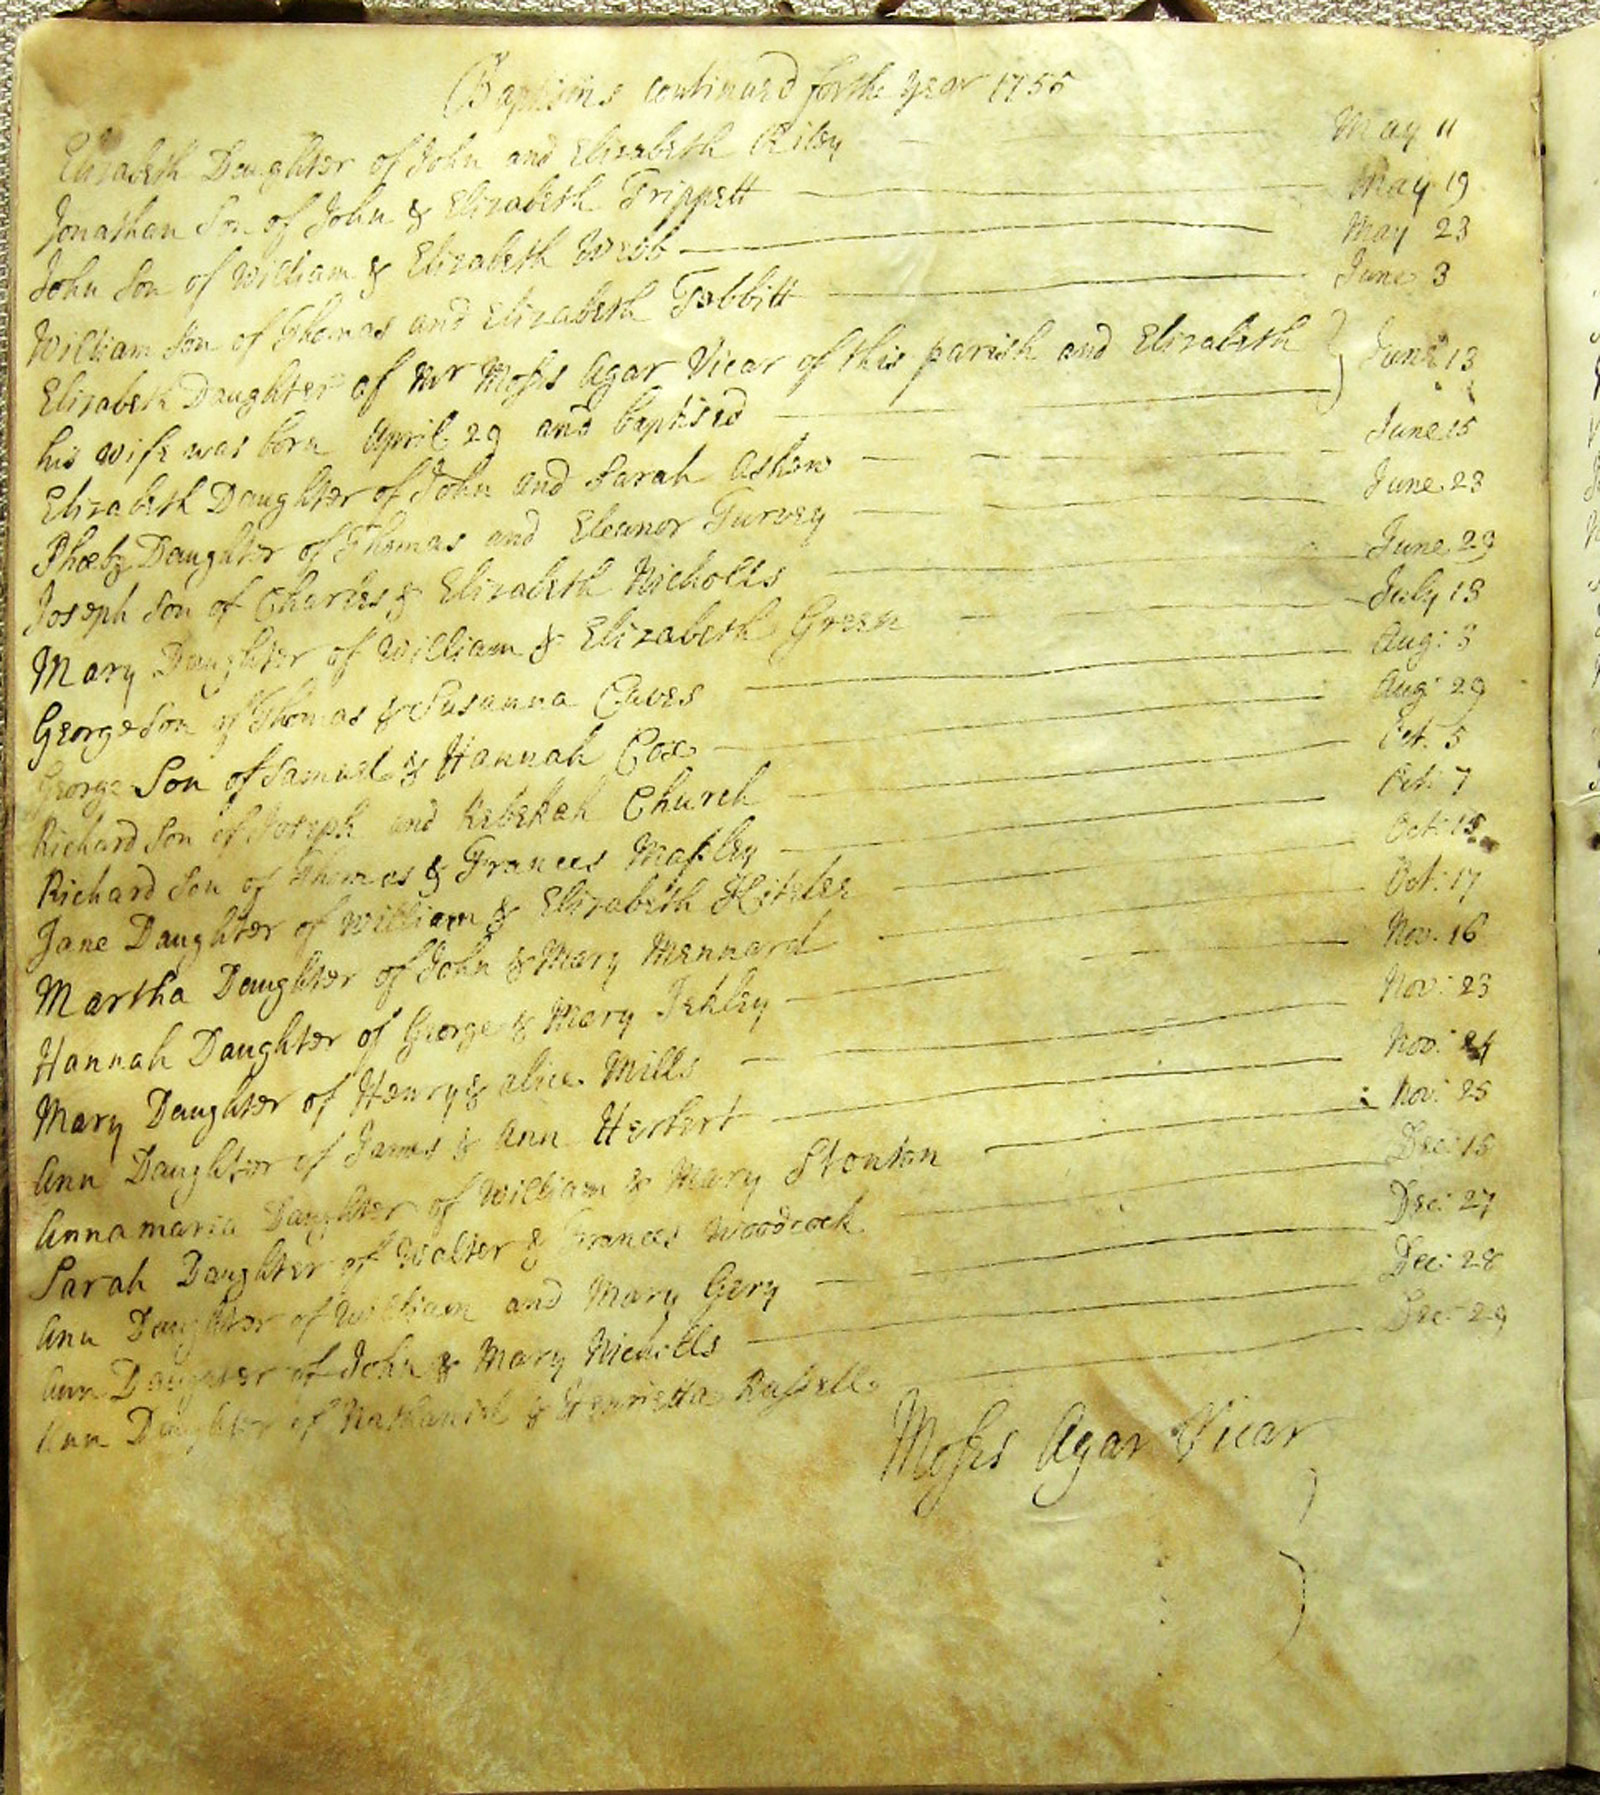 Baptisms continued for the Year 1755
Elizabeth Daughter of John and Elizabeth Riley May 11
Jonathan Son of John & Elizabeth Trippett May 19
John Son of William & Elizabeth Webb May 23
William Son of Thomas and Elizabeth Tebbitt June 3
Elizabeth Daughter of Mr Moses Agar Vicar of this parish and Elizabeth
his wife was born April 29 and baptised June 13
Elizabeth Daughter of John and Sarah Askew June 15
Phœby Daughter of Thomas and Eleanor Turvey June 23
Joseph Son of Charles & Elizabeth Nicholls June 29
Mary Daughter of William & Elizabeth Green July 13
George Son of Thomas & Susanna Caves Aug: 3
George Son of Samuel & Hannah Cox Aug: 29
Richard Son of Joseph and Rebekah Church Oct: 5
Richard Son of Thomas & Frances Massey Oct: 7
Jane Daughter of William & Elizabeth Oct: 15
Martha Daughter of John & Mary Mennard Oct: 17
Hannah Daughter of George & Mary Nov: 16
Mary Daughter of Henry & Alice Mills Nov: 23
Ann Daughter of James & Ann Herbert Nov: 24
Annamaria Daughter of William & Mary Stonton Nov: 25
Sarah Daughter of Walter & Frances Woodcock Dec: 15
Ann Daughter of William and Mary Gery Dec: 27
Ann Daughter of John & Mary Nicholls Dec: 28
Ann Daughter of Nathaniel & Henrietta Russell Dec: 29
Moses Agar Vicar